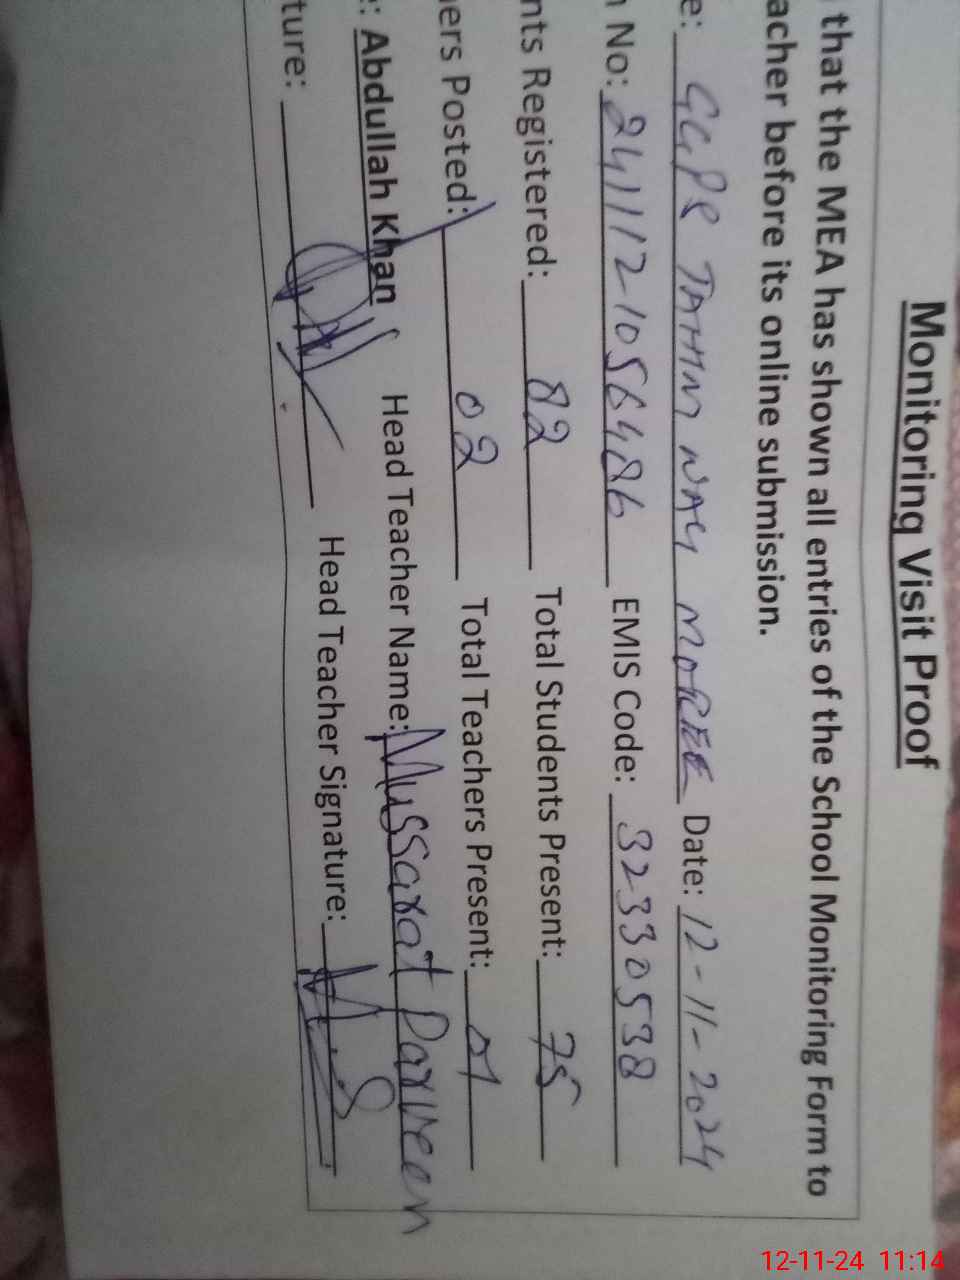 Monitoring Visit Proof
that the MEA has shown all entries of the School Monitoring Form to
acher before its online submission.
e: GGPS TAHIM WAH MOREE Date: 12-11-2024
n No: 2411121056486 EMIS Code: 32330538
nts Registered: 82 Total Students Present: 75
ners Posted: 02 Total Teachers Present: 01
e: Abdullah Khan Head Teacher Name: Mussarat Parveen
ture: Head Teacher Signature:
12-11-24 11:14